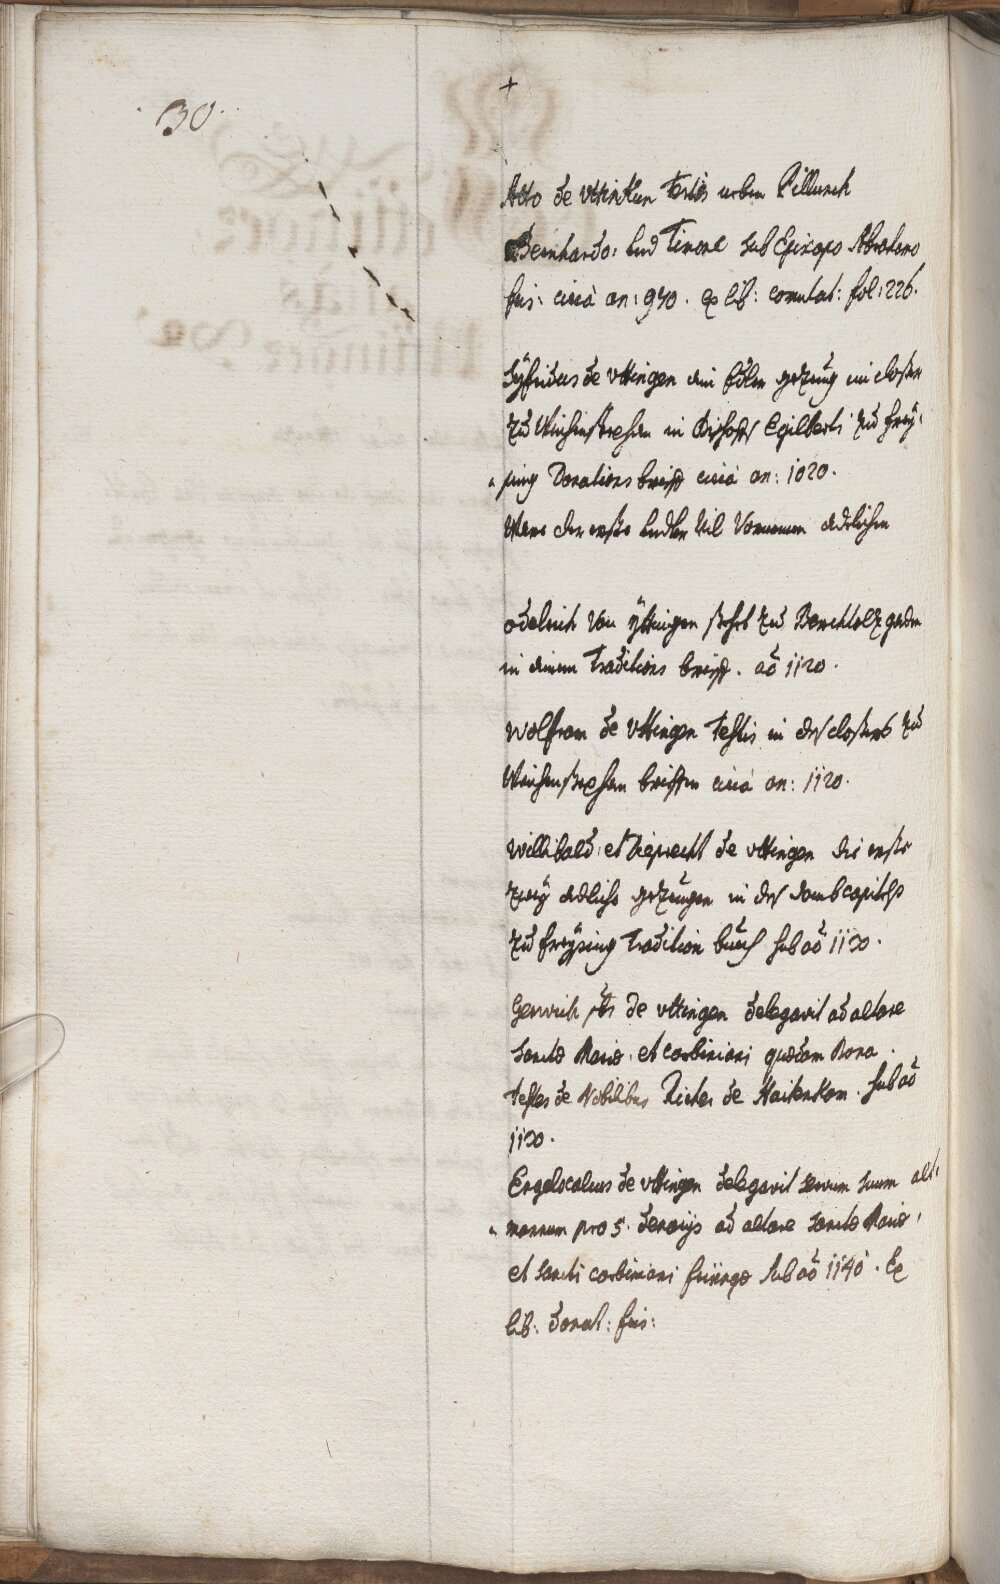 30
+
Atto de Uttinkun testis urben Pillunch
Bernhardo: und Timone sub Episcopo Abrahamo
fris: circà an: 940. ex lib: comutat: fol: 226.
Syfridus de Uttingen ain Edler gezeug im closter
zu Weichenstephan in Bischoffs Egilberti zu Frey,
sing Donations brieff circà an: 1020.
Ware der erste under vil Vornemen Adelichen
Odelrich von Yttingen steht zu Berchtolzgaden
in ainem Traditions brieff. aõ 1120.
Wolfram de Uttingen Testis in des closters zu
Weichenstephan brieffen circà an: 1120.
Willibald: et Hieprecht de Uttingen die erste
zwey adliche gezeugen in des dombcapitels
zu Freysing Tradition buech sub aõ 1130.
Gerwich de Uttingen delegavit ad altare
sanctæ Mariæ, et corbiniani quædam Bona.
Testes de Nobilibus Richer de Haitenkam. sub aõ
1130.
Engelscalcus de Uttingen delegavit servum suum alt,
mannum pro 5. denarijs ad altare sanctæ Mariæ,
et sancti corbiniani frisingæ sub aõ 1140. Ex
lib: donat: fris: